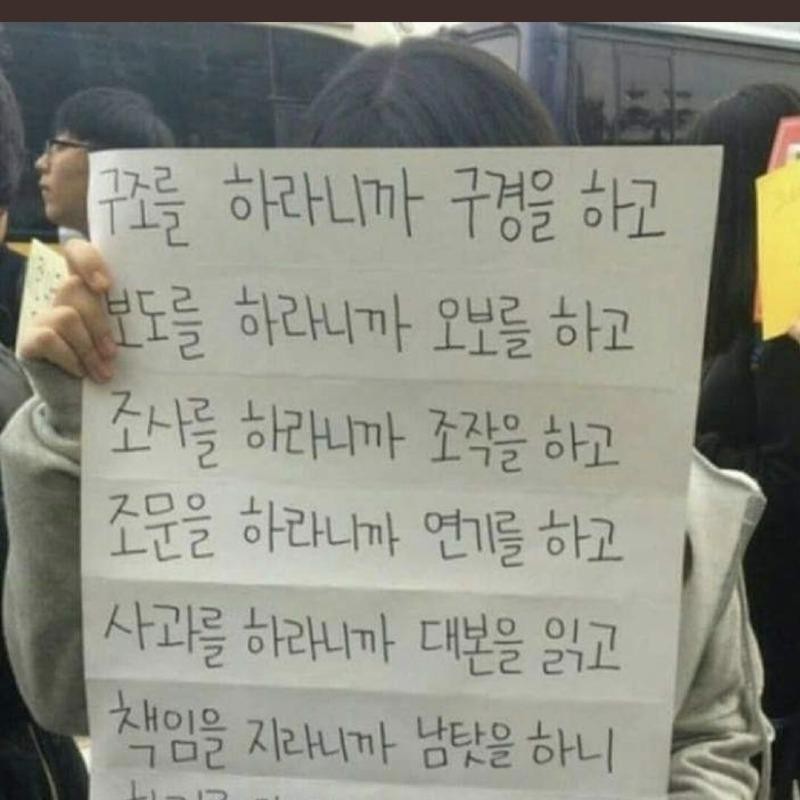 구조를 하라니까 구경을 하고
보도를 하라니까 오보를 하고
조사를 하라니까 조작을 하고
조문을 하라니까 연기를 하고
사과를 하라니까 대본을 읽고
책임을 지라니까 남탓을 하니